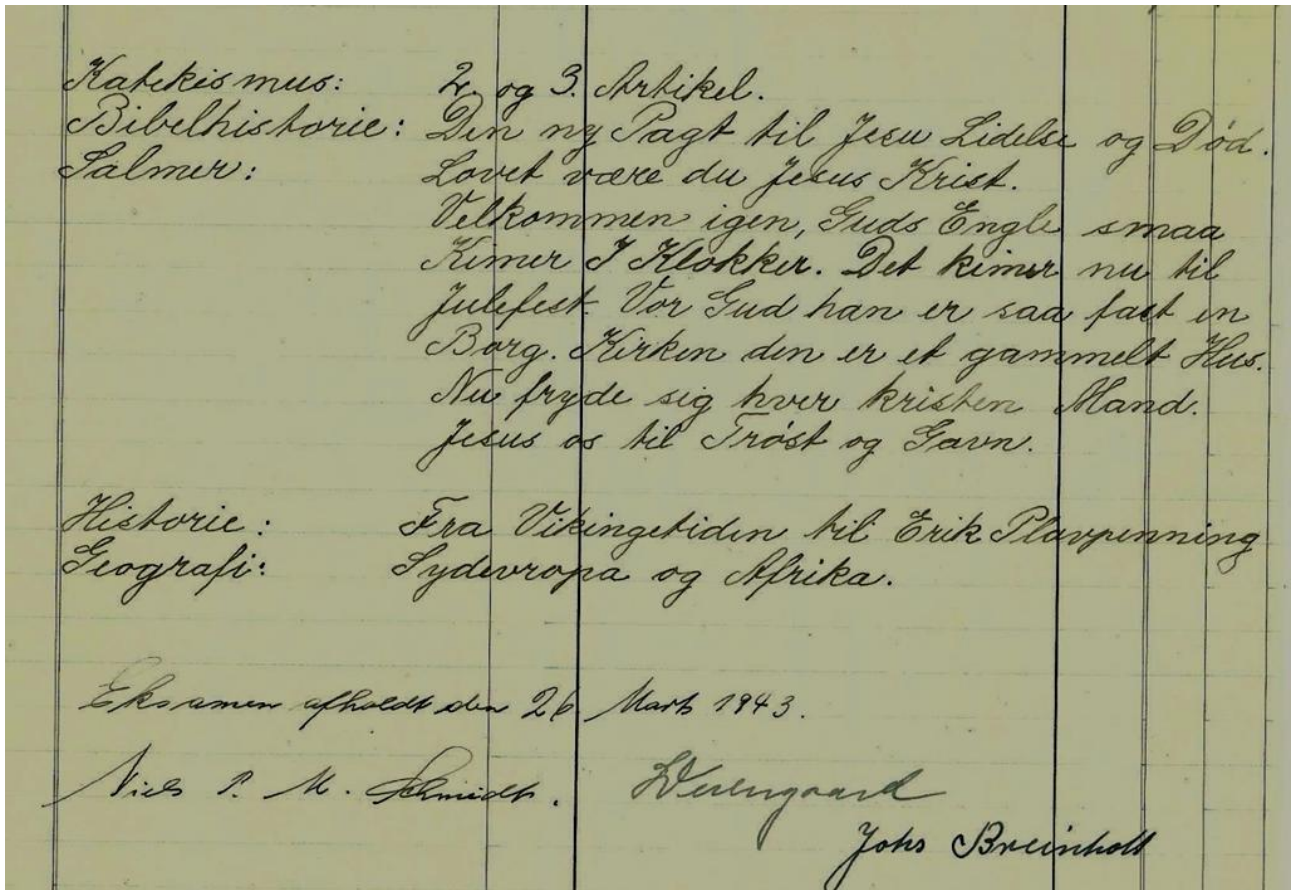 Katekismus: 2. og 3. Artikel.
Bibelhistorie: Den ny Pagt til Jesu Lidelse og Død.
Salmer: Lovet være du Jesus Krist.
Velkommen igen, Guds Engle smaa
Kimer I Klokker. Det kimer nu til
Julefest. Vor Gud han er saa fast en
Borg. Kirken den er et gammelt Hus.
Nu fryde sig hver kristen Mand.
Jesus os til Trøst og Gavn.
Historie: Fra Vikingetiden til Erik Plovpenning
Geografi: Sydevropa og Afrika.
Eksamen afholdt den 26 Marts 1943.
Niels P. M. Schmidt.
Johs Breinholt